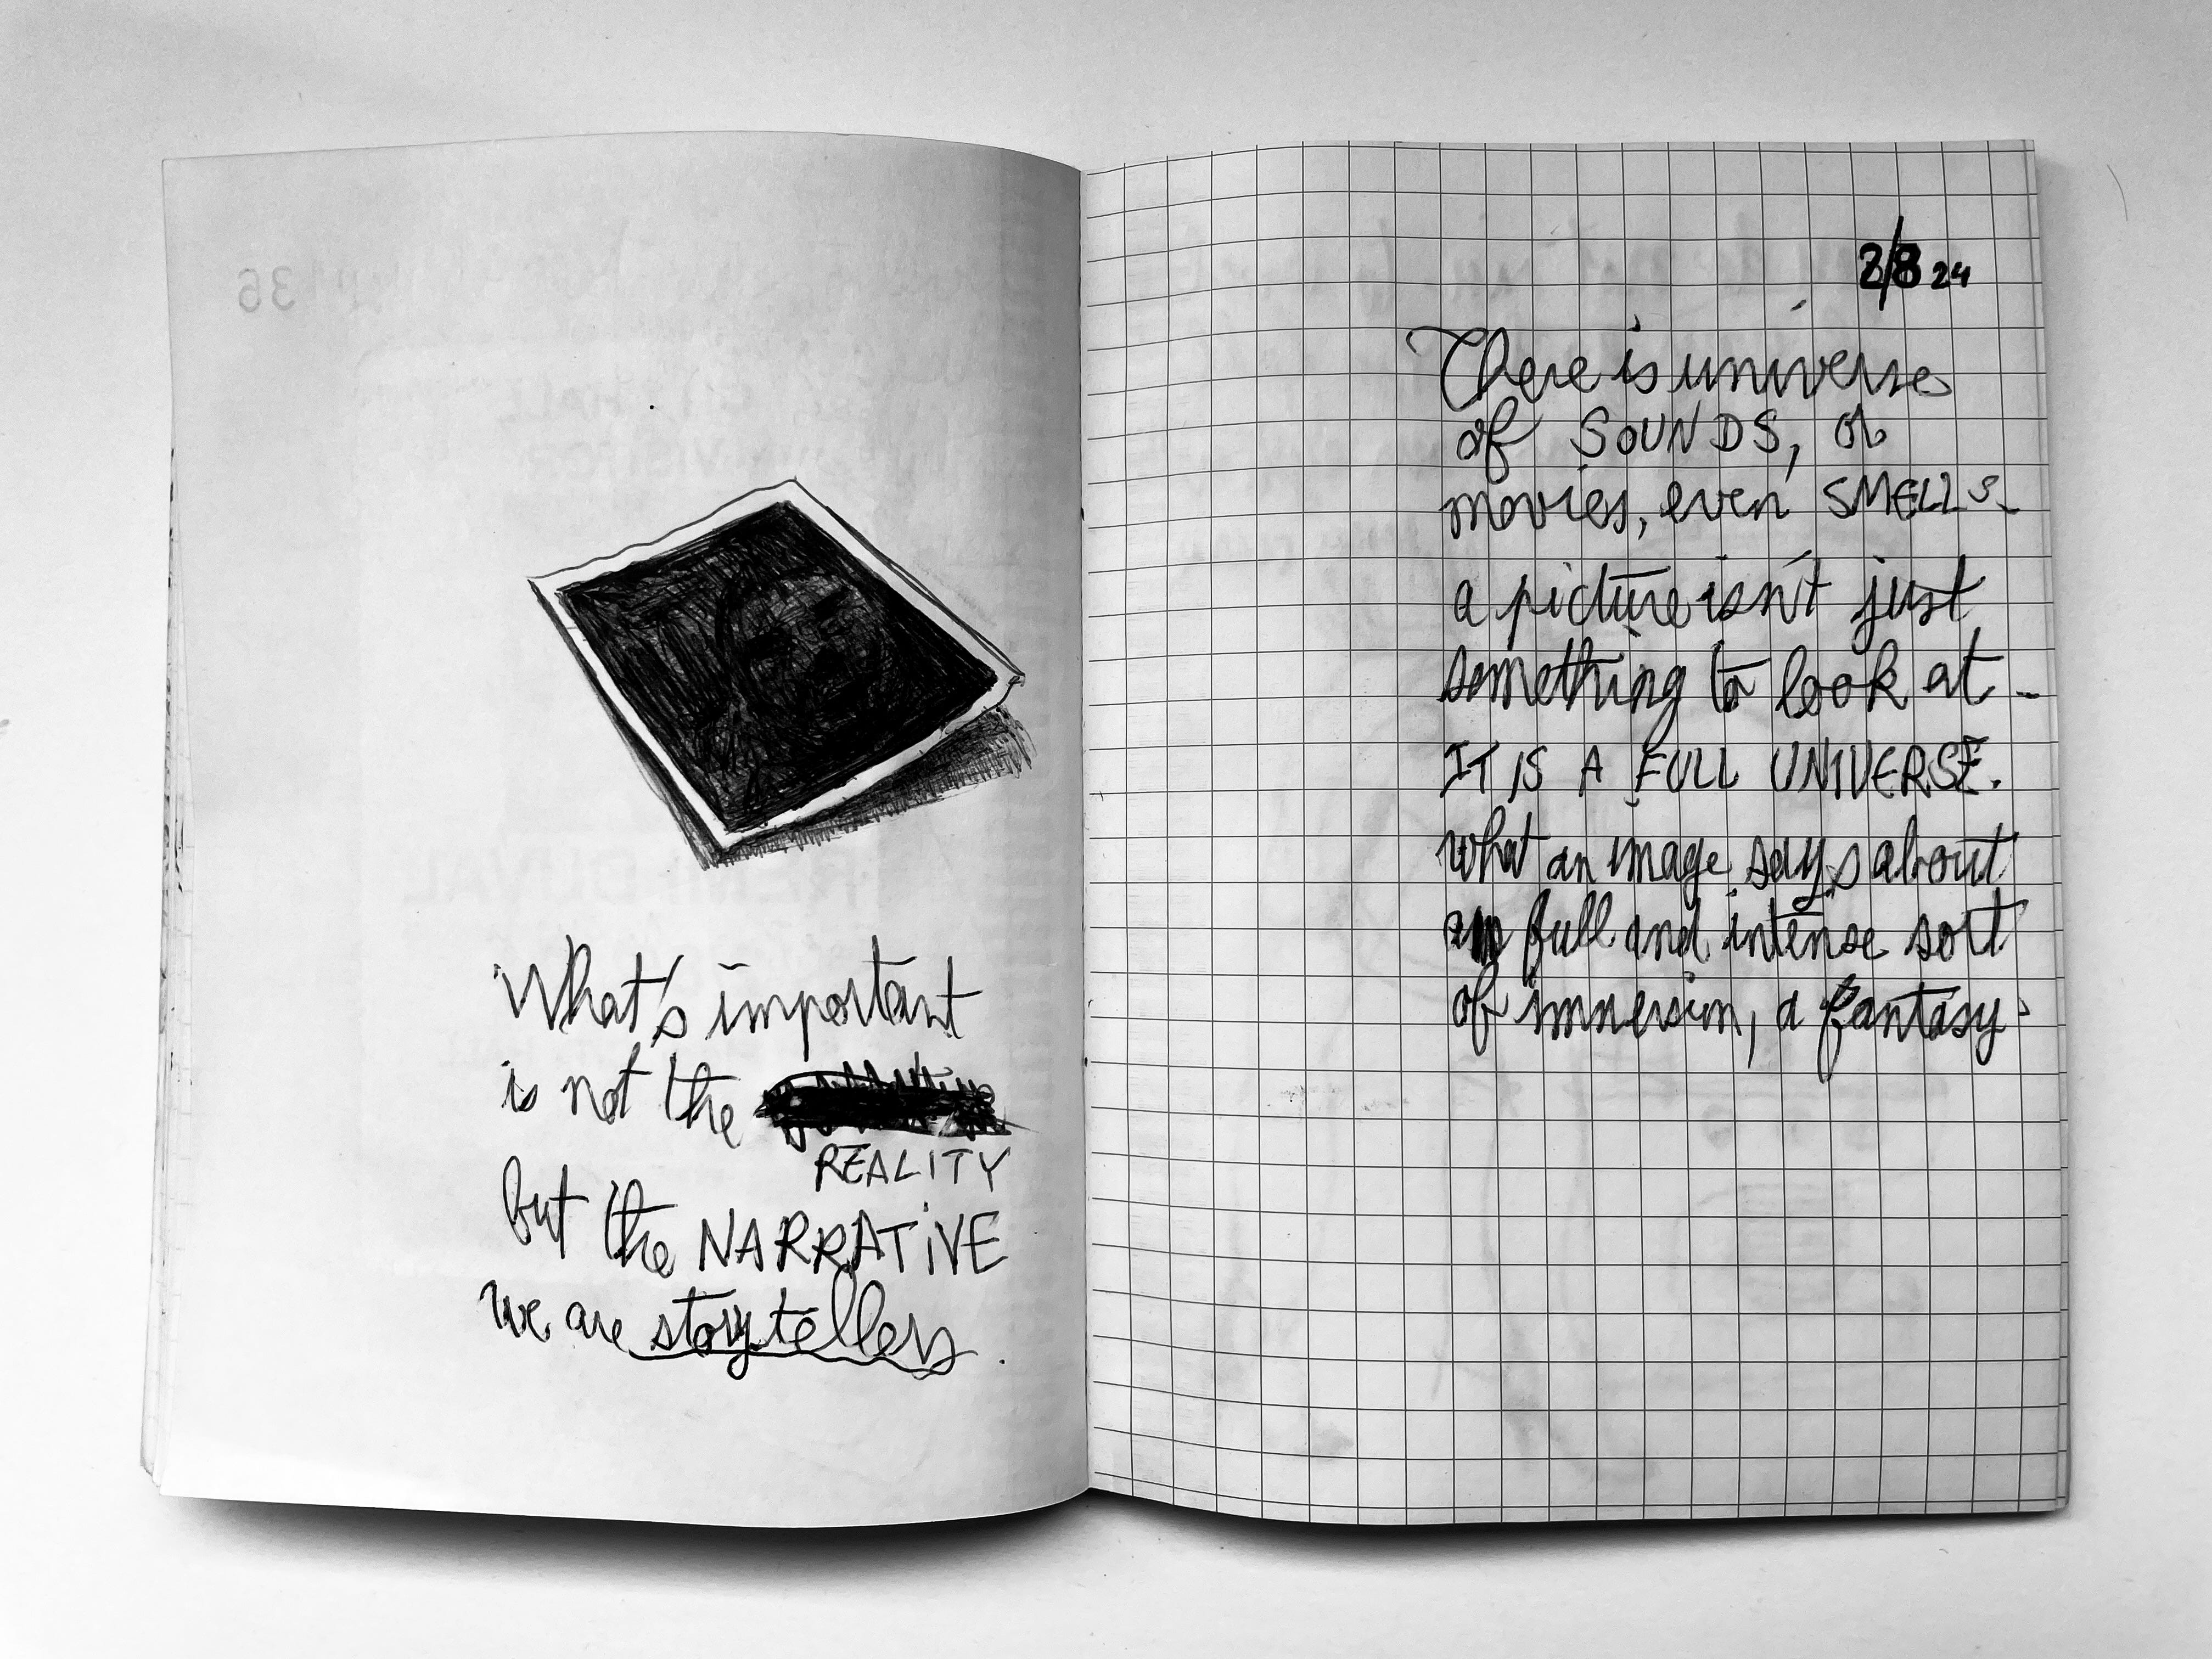 What's important
is not the
REALITY
but the NARRATIVE
we are storytellers.
24
There is universe
of SOUNDS, of
movies, even SMELLS-
a picture isn't just
something to look at -
IT IS A FULL UNIVERSE.
what an image says about
full and intense sort
of immersion, a fantasy.